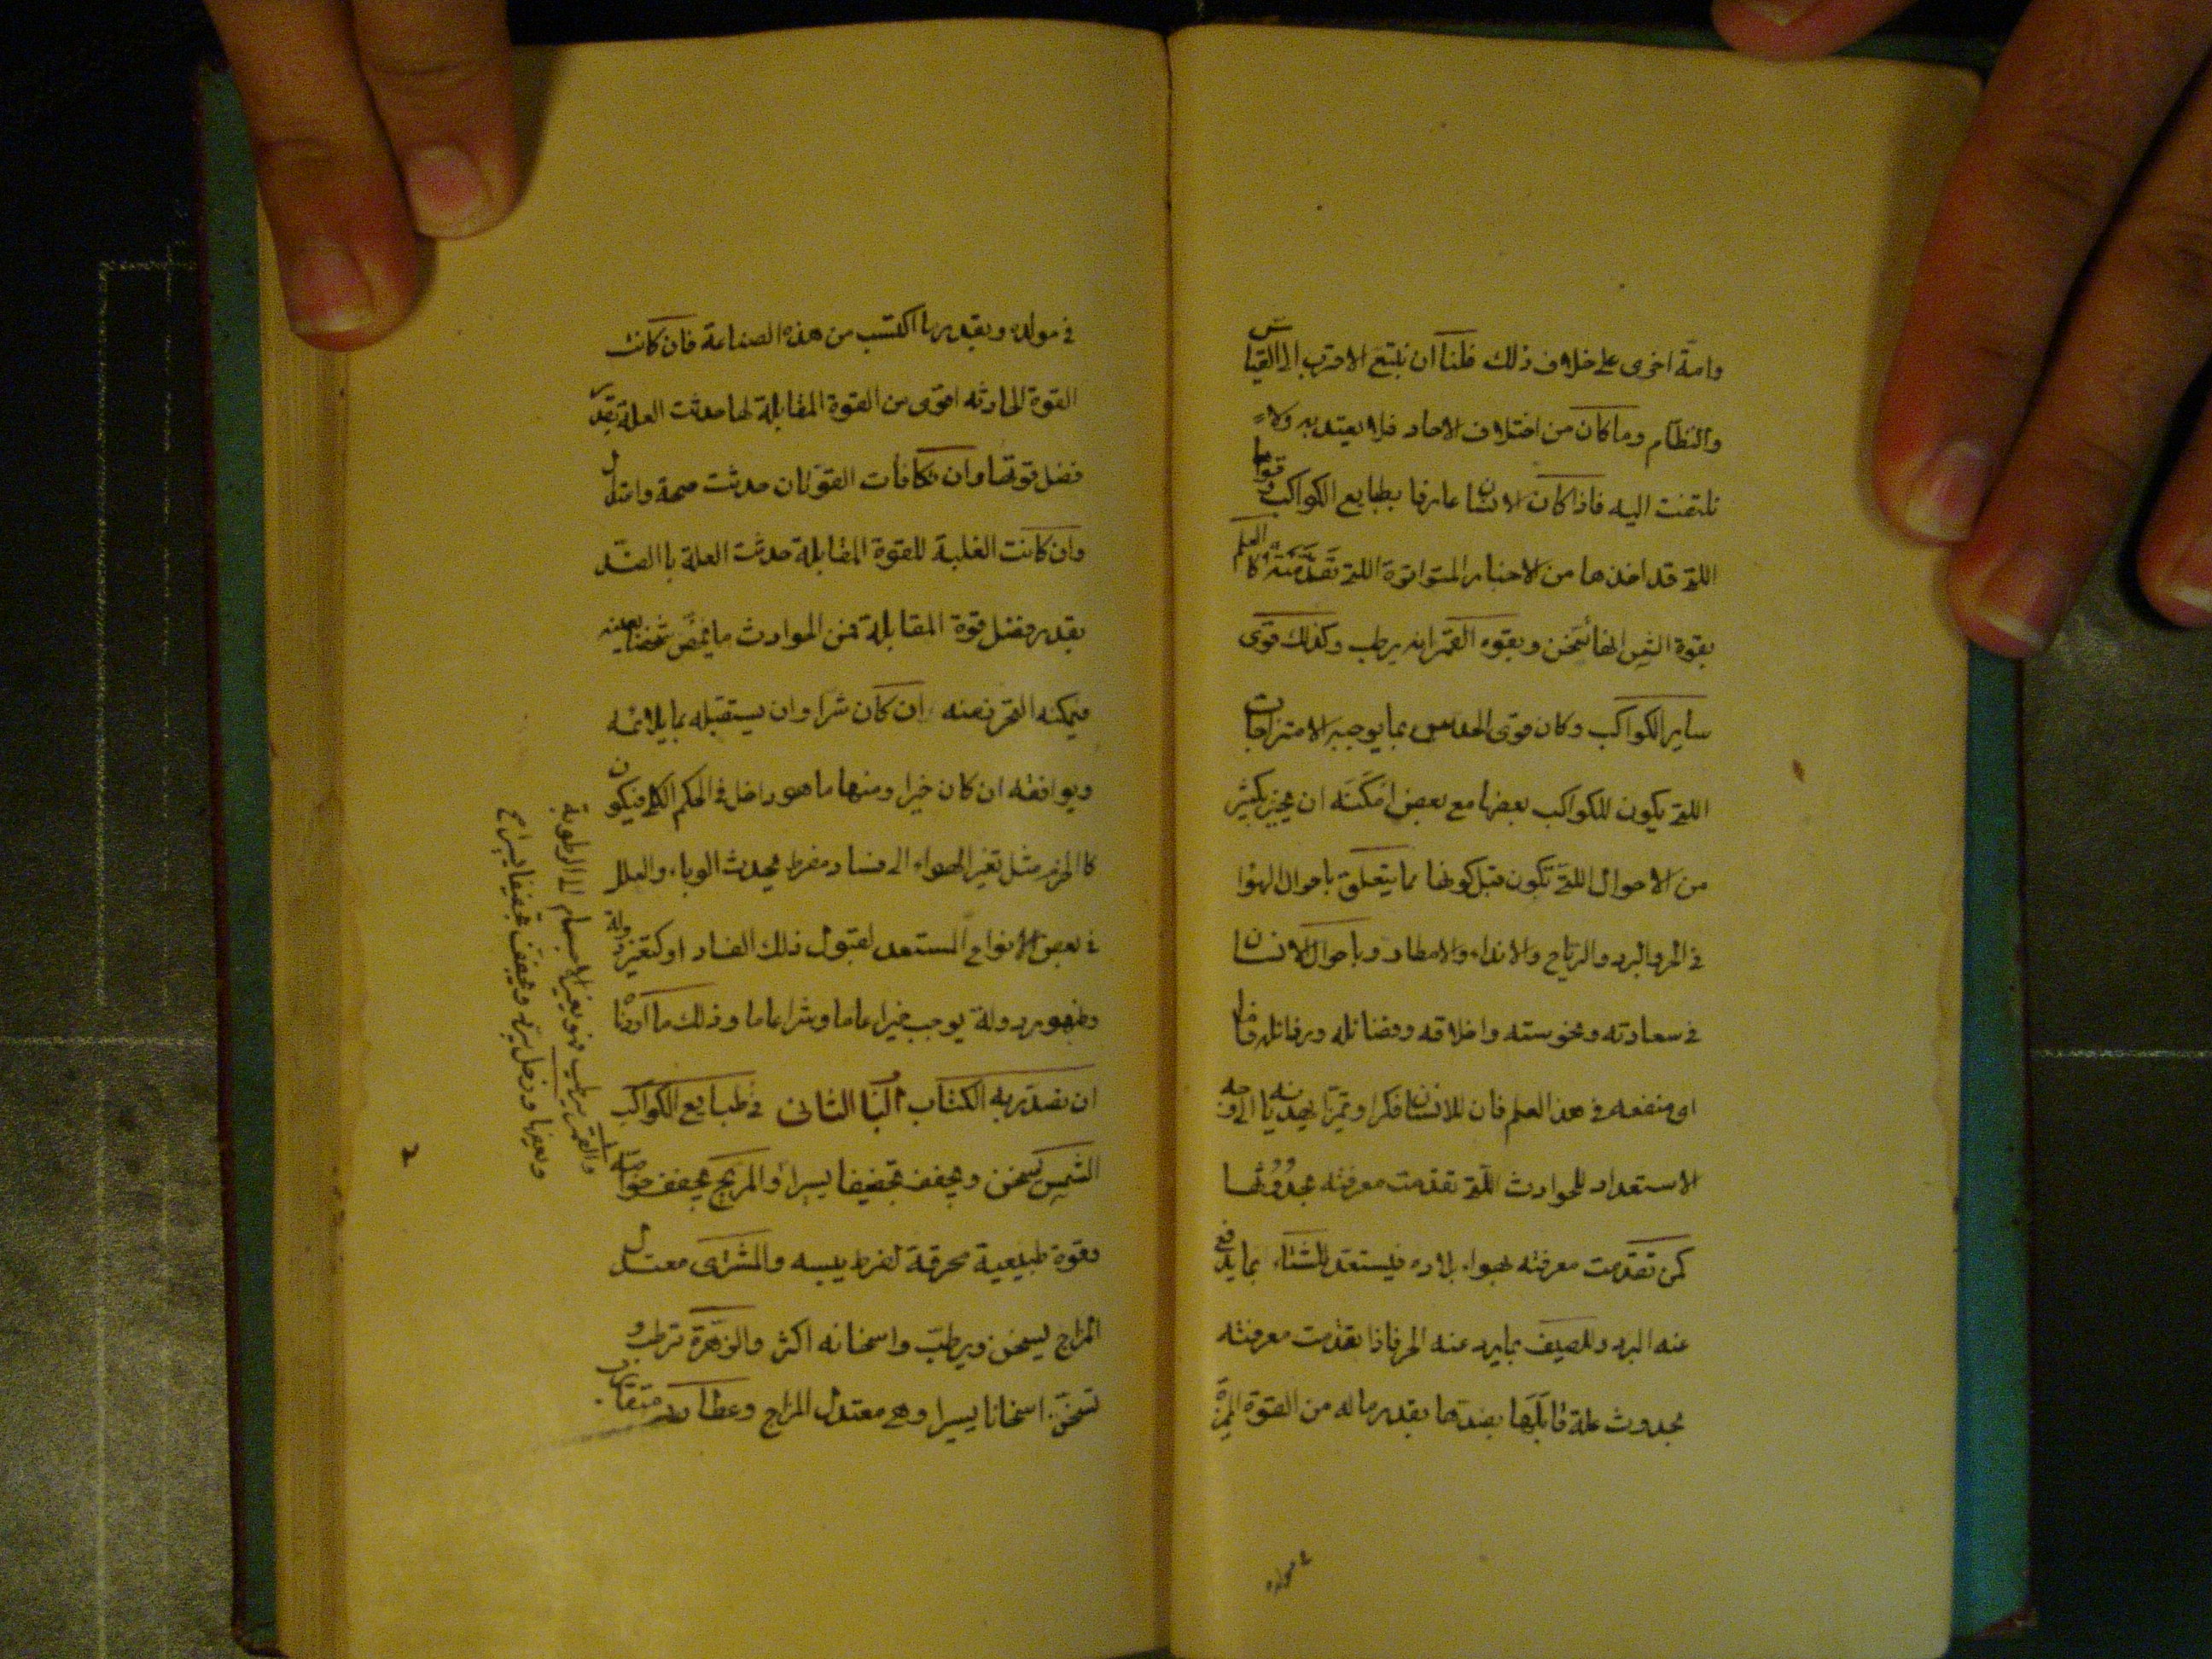 وامة اخرى على خلاف ذلك فلنا ان نتبع الاقرب الى القياس
والنظام وما كان من اختلاف الاحاد فلا يعتد به ولا
نلتفت اليه فاذا كان الانسان عارفا بطبايع الكواكب وقواها
اللتي قد اخذها من الاخبار المتواترة اللتي تقدمته كالعلم
بقوة الشمس انها تسخن وبقوه القمر انه يرطب وكذلك قوى
ساير الكواكب وكان قوى الحدس بما يوجبه الامتزاجات
اللتي يكون للكواكب بعضها مع بعض امكنه ان يخبر بكثير
من الاحوال اللتي تكون قبل كونها مما يتعلق باحوال الهوا
في الحر والبرد والرياح والانداء والامطار وباحوال الانسان
في سعادته ونحوسته واخلاقه وفضائله ورذائله فاما
اى منفعه في هذا العلم فان للانسان فكرا وتميزا يهديانه الى وجه
الاستعداد للحوادث اللتي تقدمت معرفته بحدوثها
كمن تقدمت معرفته بهواء بلاده فيستعد للشتاء بما يدفع
عنه البرد وللصيف بما يرد عنه الحر فاذا تقدمت معرفته
بحدوث علة قابلها بضدها بقدر ماله من القوة المميزة
في مولده
في مولده وبقدر ما اكتسب من هذه الصناعة فان كانت
القوة الحادثه اقوى من القوة المقابلة لها حدثت العلة بقدر
فضل قوتها وان تكافأت القوتان حدثت صحة واعتدل
وان كانت الغلبة للقوة المقابلة حدثت العلة باالضد
بقدر فضل قوة المقابلة فمن الحوادث ما يخص شخصا بعينه
فيمكنه التحرز عنه ان كان شرا وان يستقبله بما يلائمه
ويوافقه ان كان خيرا ومنها ما هو داخل في الحكم الكلي فيكون
كا الحزم مثل تغير الهواء الى فساد مفرط يحدث الوباء والعلل
في بعض الانواع المستعد لقبول ذلك الفساد او كتغير دولة
وظهور دولة يوجب خيرا عاما وشرا عاما وذلك ما اردناه
ان نصدر به الكتاب البا الثانى في طبايع الكواكب
الشمس تسخن وتجفف تجفيفا يسيرا والمريخ يجفف
وقوة طبيعية محرقة لفرط يبسه والمشترى معتدل
المزاج ليسخن ويرطب واسخانه اكثر والزهرة ترطب و
تسخن اسخانا يسيرا وهى معتدل المزاج وعطارد متقارب
والقمر يرطب فهو يغير الاجسام الى الرطوبة
وزحل يبرد ويجفف تجفيفا يسيرا